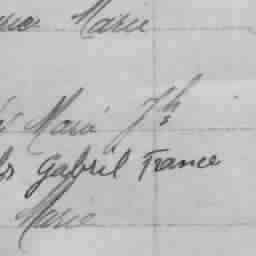 Marie
Maria Jh
Gabril France
Marie